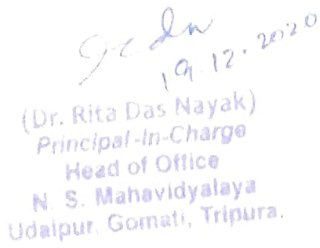 19.12.2020
(Dr. Rita Das Nayak)
Principal-In-Charge
Head of Office
N. S. Mahavidyalaya
Udaipur, Gomati, Tripura.